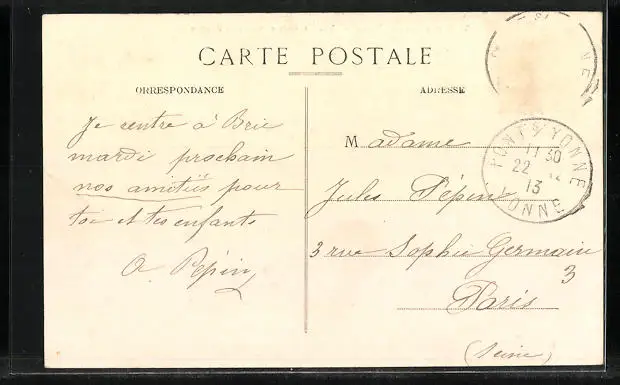 CARTE POSTALE
ORRESPONDANCE
ADRESSE
Je rentre à Brie
mardi prochain
nos amitiés pour
toi et tes enfants
A Pépin
Madame
Jules Pépin
3 rue Sophie Germain
3
Paris
(Seine)
PONT S/ YONNE
11 30
22
13
YONNE